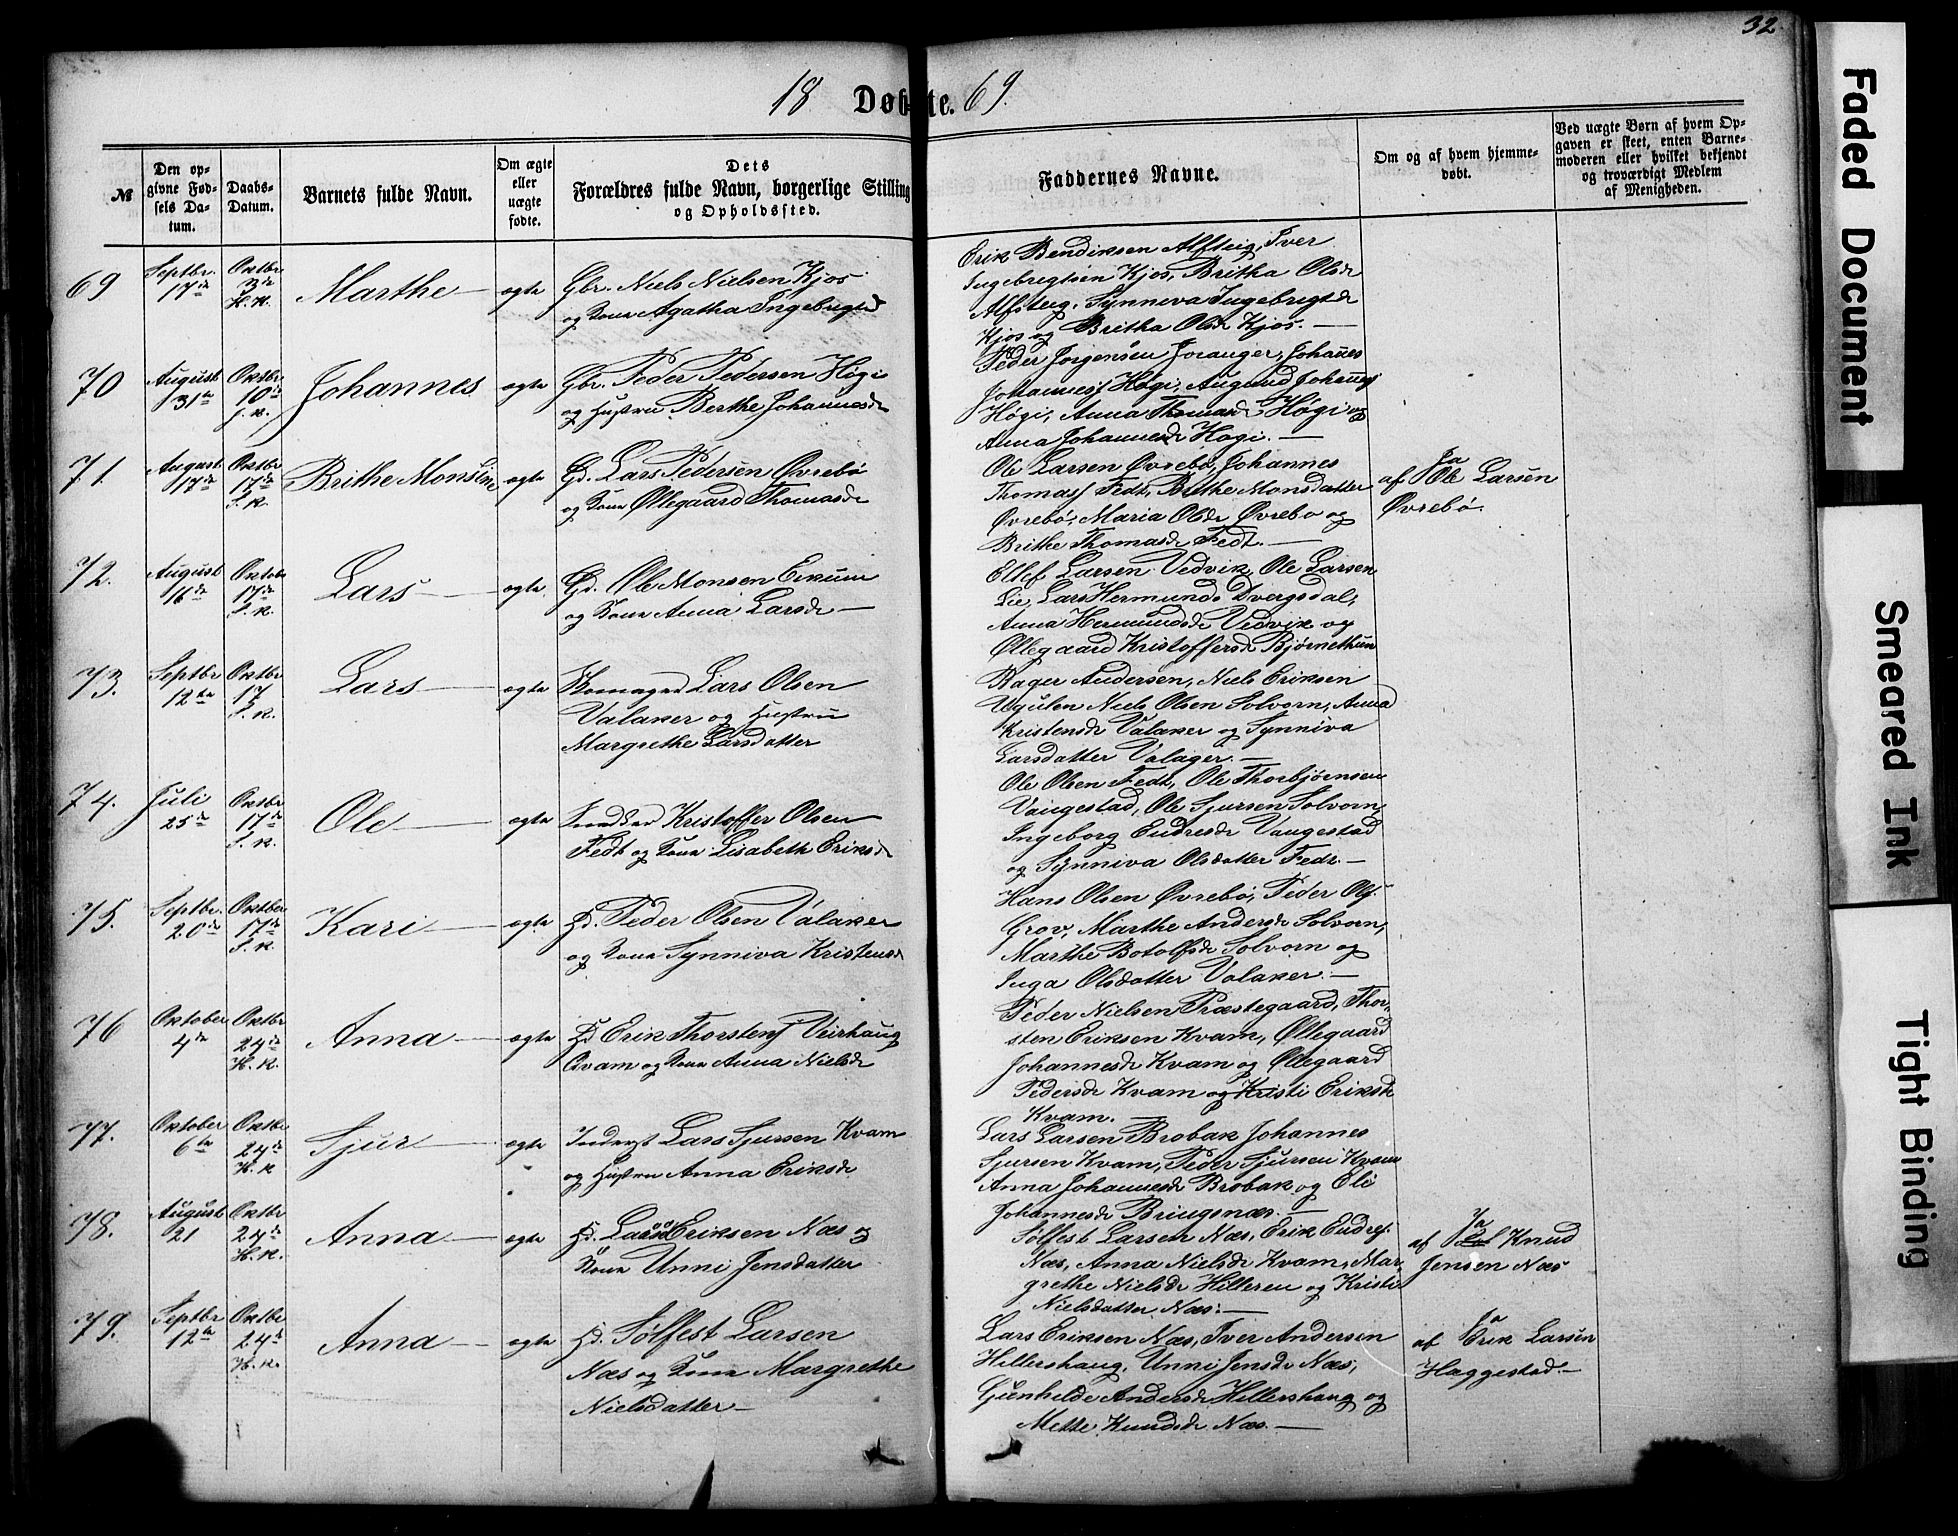 32.
18 Døbte. 69.
№
Den opgivne Fødsels Datum.
Daabs-Datum.
Barnets fulde Navn.
Om ægte eller uægte fødte.
Dets Forældres fulde Navn, borgerlige Stilling og Opholdssted.
Faddernes Navne.
Om og af hvem hjemmedøbt.
Ved uægte Børn af hvem Opgaven er skeet, enten Barnemoderen eller hvilket bekjendt og troværdigt Medlem af Menigheden.
69
Septbr. 17de
Oktbr 3die H. K.
Marthe
ægte
Gbr. Niels Nielsen Kjos
og Kone Agatha Ingebrigtsd
Erik Bendiksen Alfsteig, Iver
Ingebrigtsen Kjos, Britha Olsdr
Alfsteig, Synneva Ingebrigtdr
Kjos og Britha Olsdr Kjos.
70
August 31te
Oktbr. 10de J. K.
Johannes
ægte
Gbr. Peder Pedersen Høgi
og Hustru Berthe Johannesdr
Peder Jørgensen Joranger, Johannes
Johannesf Høgi, Augund Johannesf
Høgi, Anna Thomasdr Høgi og
Anna Johannesdr Høgi.
71.
August 17de
Oktbr 17de S. K.
Brithe Monsine
ægte
Gd. Lars Pedersen Øvrebø
og Kone Øllegaard Thomasdr
Ole Larsen Øvrebø, Johannes
Thomasf Fedt, Brithe Monsdatter
Øvrebø, Maria Olsdr Øvrebø og
Brithe Thomasdr Fedt.
Ja
af Ole Larsen
Øvrebø.
72.
August 16de
Oktobr 17de S. K.
Lars
ægte
Gd. Ole Monsen Eikum
og Kone Anna Larsdr
Ellef Larsen Vedvik, Ole Larsen
Lie, Lars Hermunds. Dvergsdal,
Anna Hermundsdr Vedvik og
Øllegaard Kristoffersdr Bjørnethun
73.
Septbr 12te
Oktbr 17 S. K.
Lars
ægte
Skomager Lars Olsen
Valaker og Hustru
Margrethe Larsdatter
Hager Andersen, Niels Eriksen
Ugulen Niels Olsen Solvorn, Anna
Kristensdr Valaker og Synniva
Larsdatter Valager.
74.
Juli 25de
Oktbr 17de S. K.
Ole
ægte
Snedker Kristoffer Olsen
Fedt og Kone Lisabeth Eriksdr
Ole Olsen Fedt, Ole Thorbjørnsen
Vangestad, Ole Sjursen Solvorn,
Ingeborg Endresdr Vangestad
og Synniva Olsdatter Fedt.
75.
Septbr. 20de
Oktber 17de S. K.
Kari
ægte
Hd. Peder Olsen Valaker
og Kone Synniva Kristensdr
Hans Olsen Øvrebø, Peder Olsf.
Grov, Marthe Andersdr Solvorn,
Marthe Botolfsdr Solvorn og
Inga Olsdatter Valaker.
76
Oktober 4de
Oktbr 24de H. K.
Anna
ægte
Hd Erik Thorstensf Veirhaug
Qvam og Kone Anna Nielsdr
Peder Nielsen Præstegaard, Thor-
sten Eriksen Kvam, Øllegaard
Johannesdr Kvam og Øllegaard
Pedersdr Kvam og Kristi Eriksdr
Kvam.
77.
Oktober 6te
Oktbr. 24de H. K
Sjur
ægte
Inderst Lars Sjursen Kvam
og Hustru Anna Eriksdr
Lars Larsen Brobak Johannes
Sjursen Kvam, Peder Sjursen Kvam
Anna Johannesdr Brobak og Eli
Johannesdr Bringsnæs.
78.
August 21
Oktbr 24de H. K.
Anna
ægte
Hd. Lars Eriksen Næs og
Kone Unni Jensdatter
Sølfest Larsen Næs, Erik Endresf.
Næs, Anna Nielsdr Kvam, Mar-
grethe Nielsdr Hilleren og Kristi
Nielsdatter Næs.
Ja
af Knud
Jensen Næs
79.
Septbr 12te
Oktbr 24de H. K.
Anna
ægte
Hd. Sølfest Larsen
Næs og Kone Margrethe
Nielsdatter
Lars Eriksen Næs, Iver Andersen
Hillershaug, Unni Jensdr Næs,
Gunhilde Andersdr Hillershaug og
Mette Knudsdr Næs.
Ja
af Erik Larsen
Haggestad.
Faded Document
Smeared Ink
Tight Binding